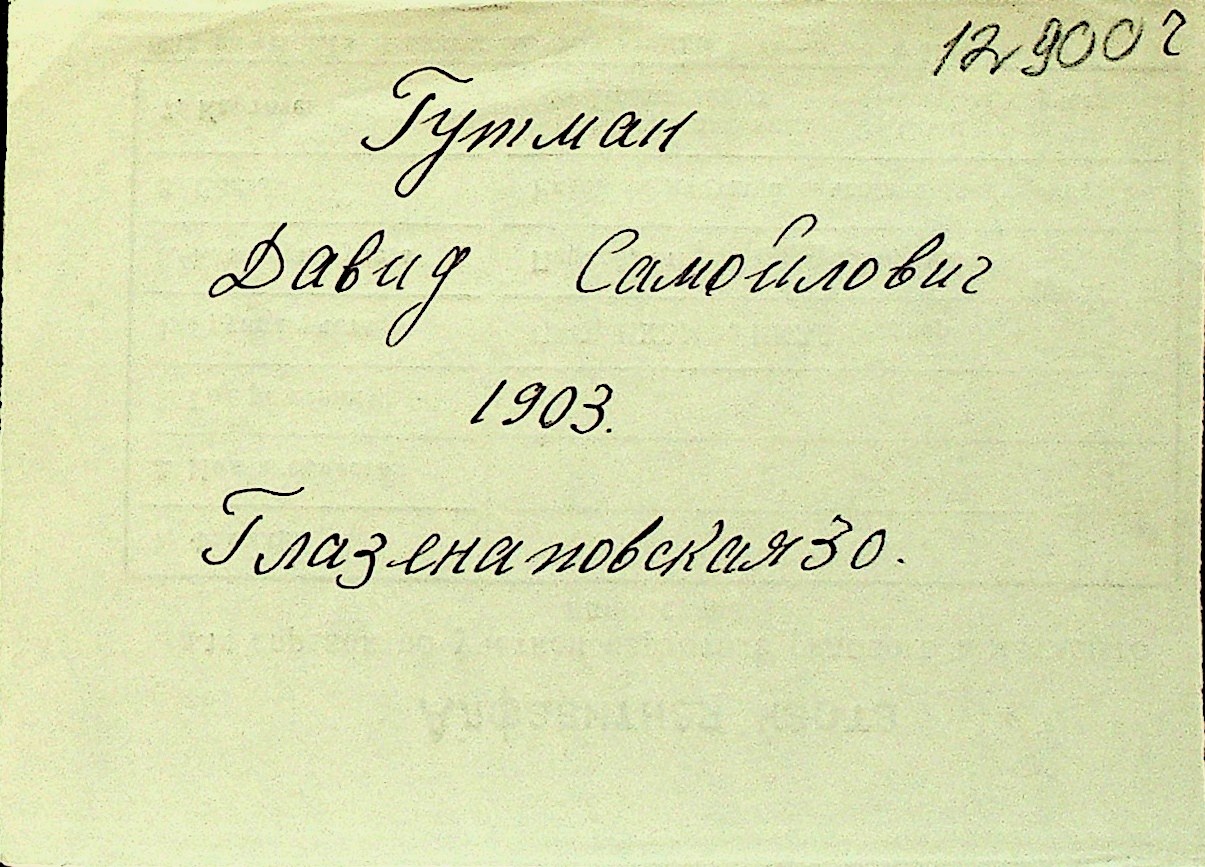 12900 г
Гутман
Давид Самойлович
1903.
Глазенаповская 30.